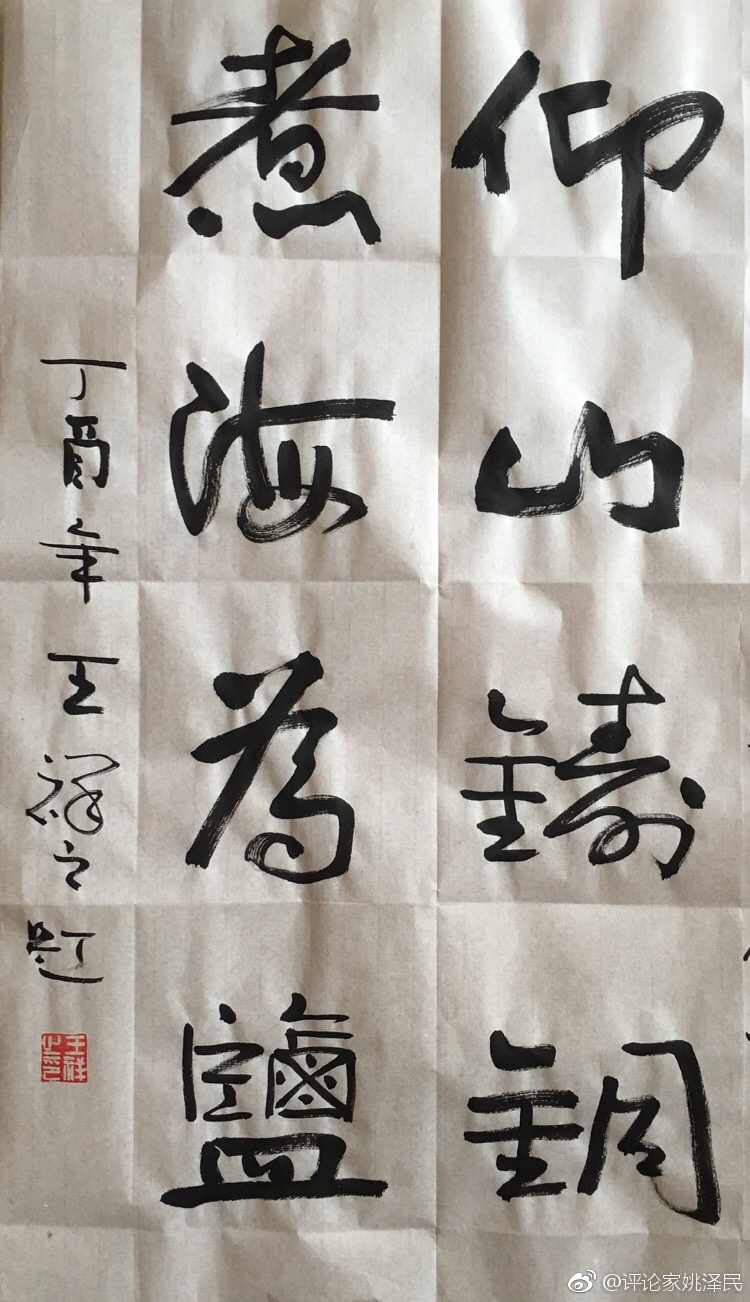 仰山鑄銅
煮海為鹽
丁酉年王祥之題
王祥之印
@评论家姚泽民